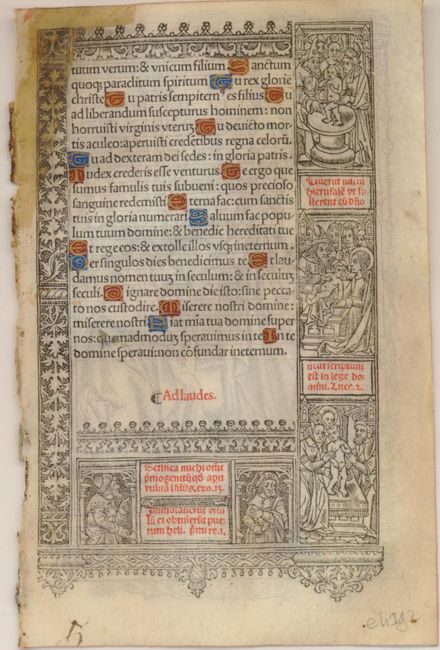 tuum verum: & vnicum filium Sanctum
quoqʒ paraclitum spiritum Tu rex glorie
christe Tu patris sempitern⁹ es filius Tu
ad liberandum suscepturus hominem: non
horruisti virginis vterū Tu deuicto mor-
tis aculeo: aperuisti credentibus regna celorū.
Tu ad dexteram dei sedes: in gloria patris.
Iudex crederis esse venturus Te ergo que
sumus famulis tuis subueni: quos precioso
sanguine redemisti Eterna fac: cum sanctis
tuis in gloria numerari Saluum fac popu
lum tuum domine: & benedic hereditati tue
Et rege eos: & extolle illos vsqʒ in eternum.
Per singulos dies benedicimus te Et lau
damus nomen tuūʒ in seculum: & in seculūʒ
seculi. Dignare domine die isto: sine pecca
to nos custodire. Miserere nostri domine:
miserere nostri Fiat mīa tua domine super
nos: quemadmodūʒ sperauimus in te In te
domine speraui: non cōfundar in eternum.
¶Ad laudes.
Tulerūt illū in
hierusalē vt si-
sterent eū dño
sicut scriptum
est in lege do-
mini. Luce. 2.
Sctifica michi om̄e
pmogenitūqd apit
vuluā i filiis. exo. 13.
Immolauerūt vitu
lū et obtulerūt pue
rum heli. pmi re. 1.